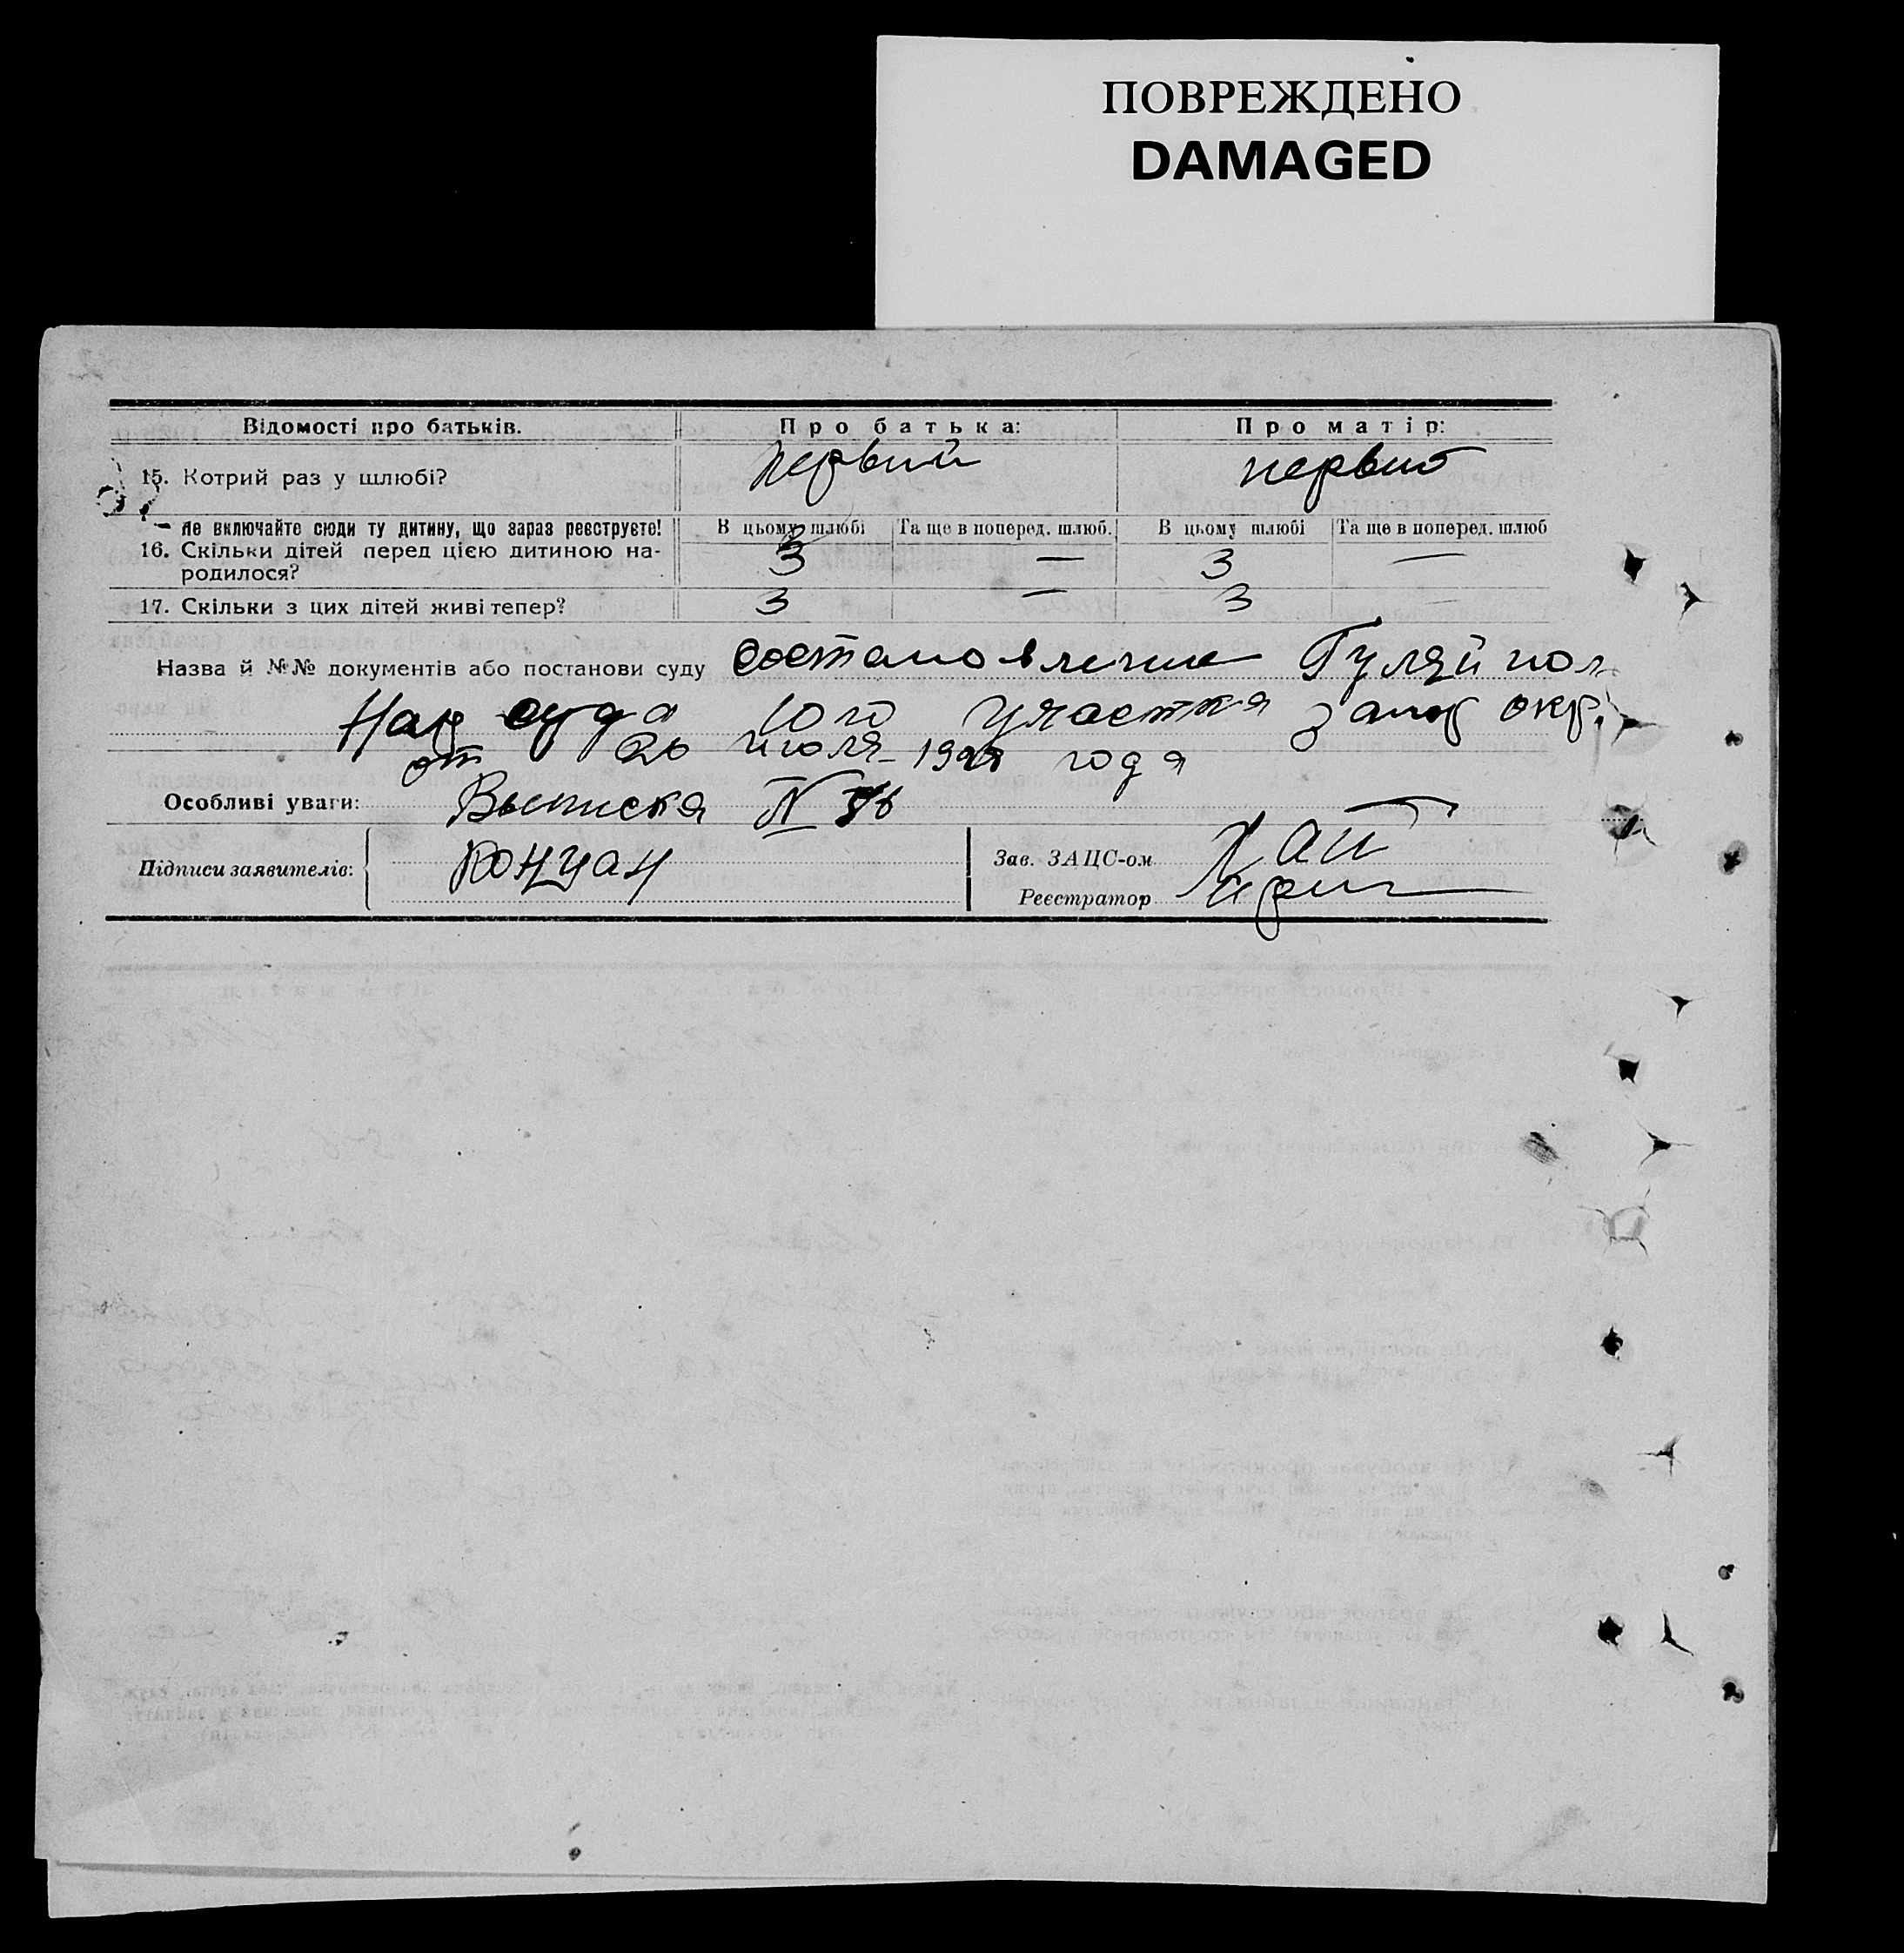 ПОВРЕЖДЕНО
DAMAGED
Відомості про батьків. Про батька: Про матір:
15. Котрий раз у шлюбі? первый первый
— Не включайте сюди ту дитину, що зараз реєструєте! В цьому шлюбі Та ще в поперед. шлюб. В цьому шлюбі Та ще в поперед. шлюб
16. Скільки дітей перед цією дитиною на- 3 — 3 —
родилося?
17. Скільки з цих дітей живі тепер? 3 — 3 —
Назва й №№ документів або постанови суду Гуляйпол
Нар суда 10го участка запор окр.
от 26 июля года
Особливі уваги: Выписка N
Підписи заявителів: Зав. ЗАЦС-ом
Реєстратор